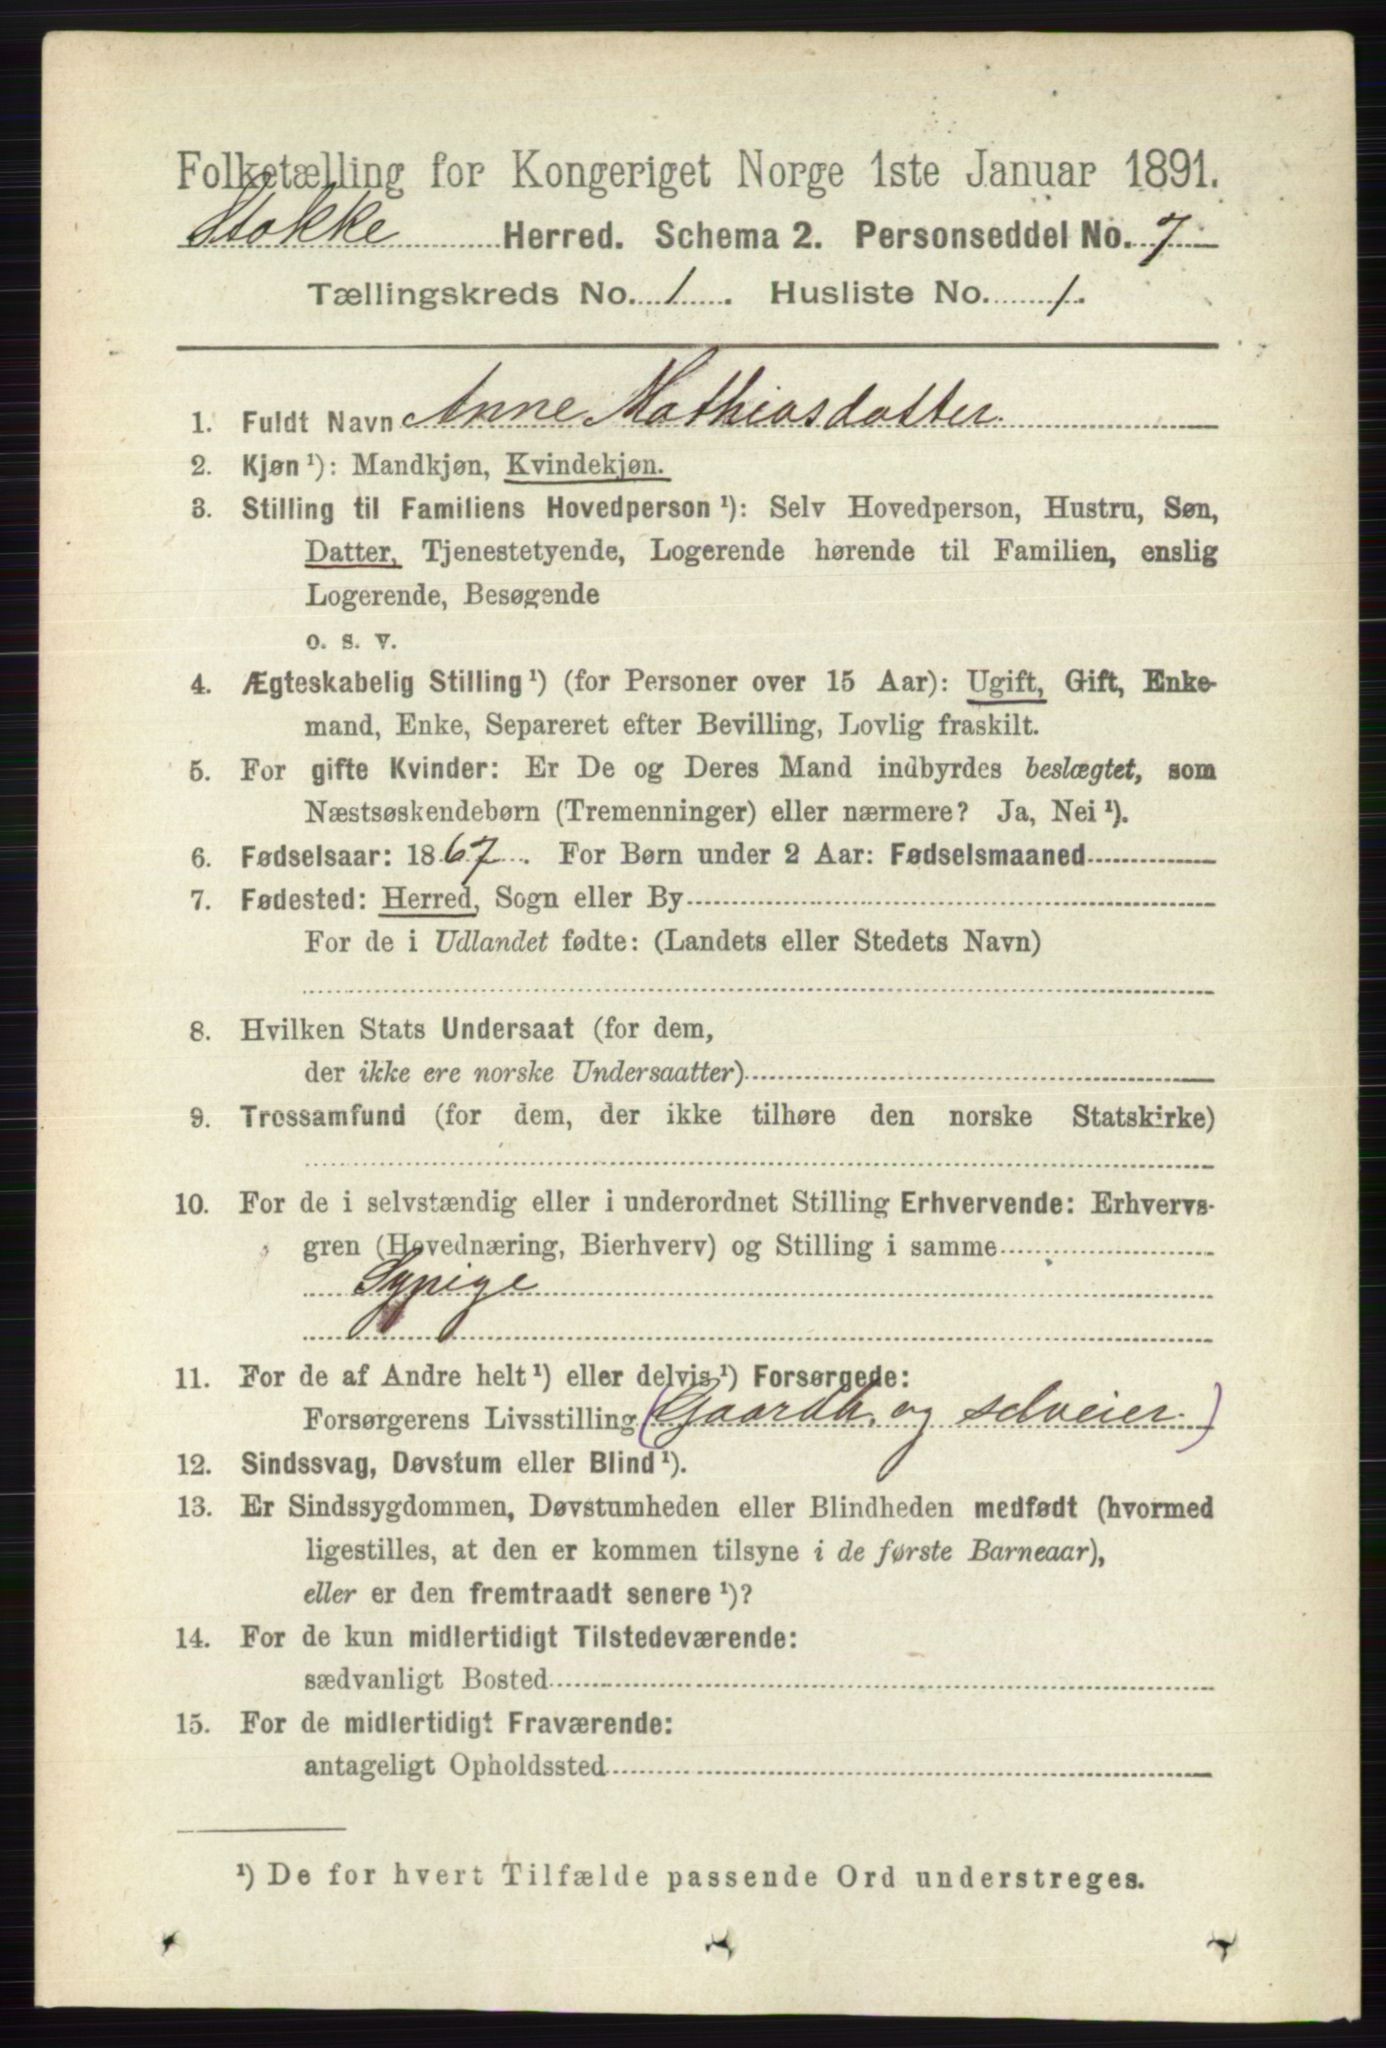 Folketælling for Kongeriget Norge 1ste Januar 1891.
Stokke Herred. Schema 2. Personseddel No. 7
Tællingskreds No. 1. Husliste No. 1.
1. Fuldt Navn Anne Mathiasdatter
2. Kjøn ¹): Mandkjøn, Kvindekjøn.
3. Stilling til Familiens Hovedperson ¹): Selv Hovedperson, Hustru, Søn,
Datter, Tjenestetyende, Logerende hørende til Familien, enslig
Logerende, Besøgende
o. s. v.
4. Ægteskabelig Stilling ¹) (for Personer over 15 Aar): Ugift, Gift, Enke-
mand, Enke, Separeret efter Bevilling, Lovlig fraskilt.
5. For gifte Kvinder: Er De og Deres Mand indbyrdes beslægtet, som
Næstsøskendebørn (Tremenninger) eller nærmere? Ja, Nei ¹).
6. Fødselsaar: 1867. For Børn under 2 Aar: Fødselsmaaned
7. Fødested: Herred, Sogn eller By
For de i Udlandet fødte: (Landets eller Stedets Navn)
8. Hvilken Stats Undersaat (for dem,
der ikke ere norske Undersaatter)
9. Trossamfund (for dem, der ikke tilhøre den norske Statskirke)
10. For de i selvstændig eller i underordnet Stilling Erhvervende: Erhvervs-
gren (Hovednæring, Bierhverv) og Stilling i samme
Sypige
11. For de af Andre helt ¹) eller delvis ¹) Forsørgede:
Forsørgerens Livsstilling (Gaardb. og selveier)
12. Sindssvag, Døvstum eller Blind ¹).
13. Er Sindssygdommen, Døvstumheden eller Blindheden medfødt (hvormed
ligestilles, at den er kommen tilsyne i de første Barneaar),
eller er den fremtraadt senere ¹)?
14. For de kun midlertidigt Tilstedeværende:
sædvanligt Bosted
15. For de midlertidigt Fraværende:
antageligt Opholdssted
¹) De for hvert Tilfælde passende Ord understreges.